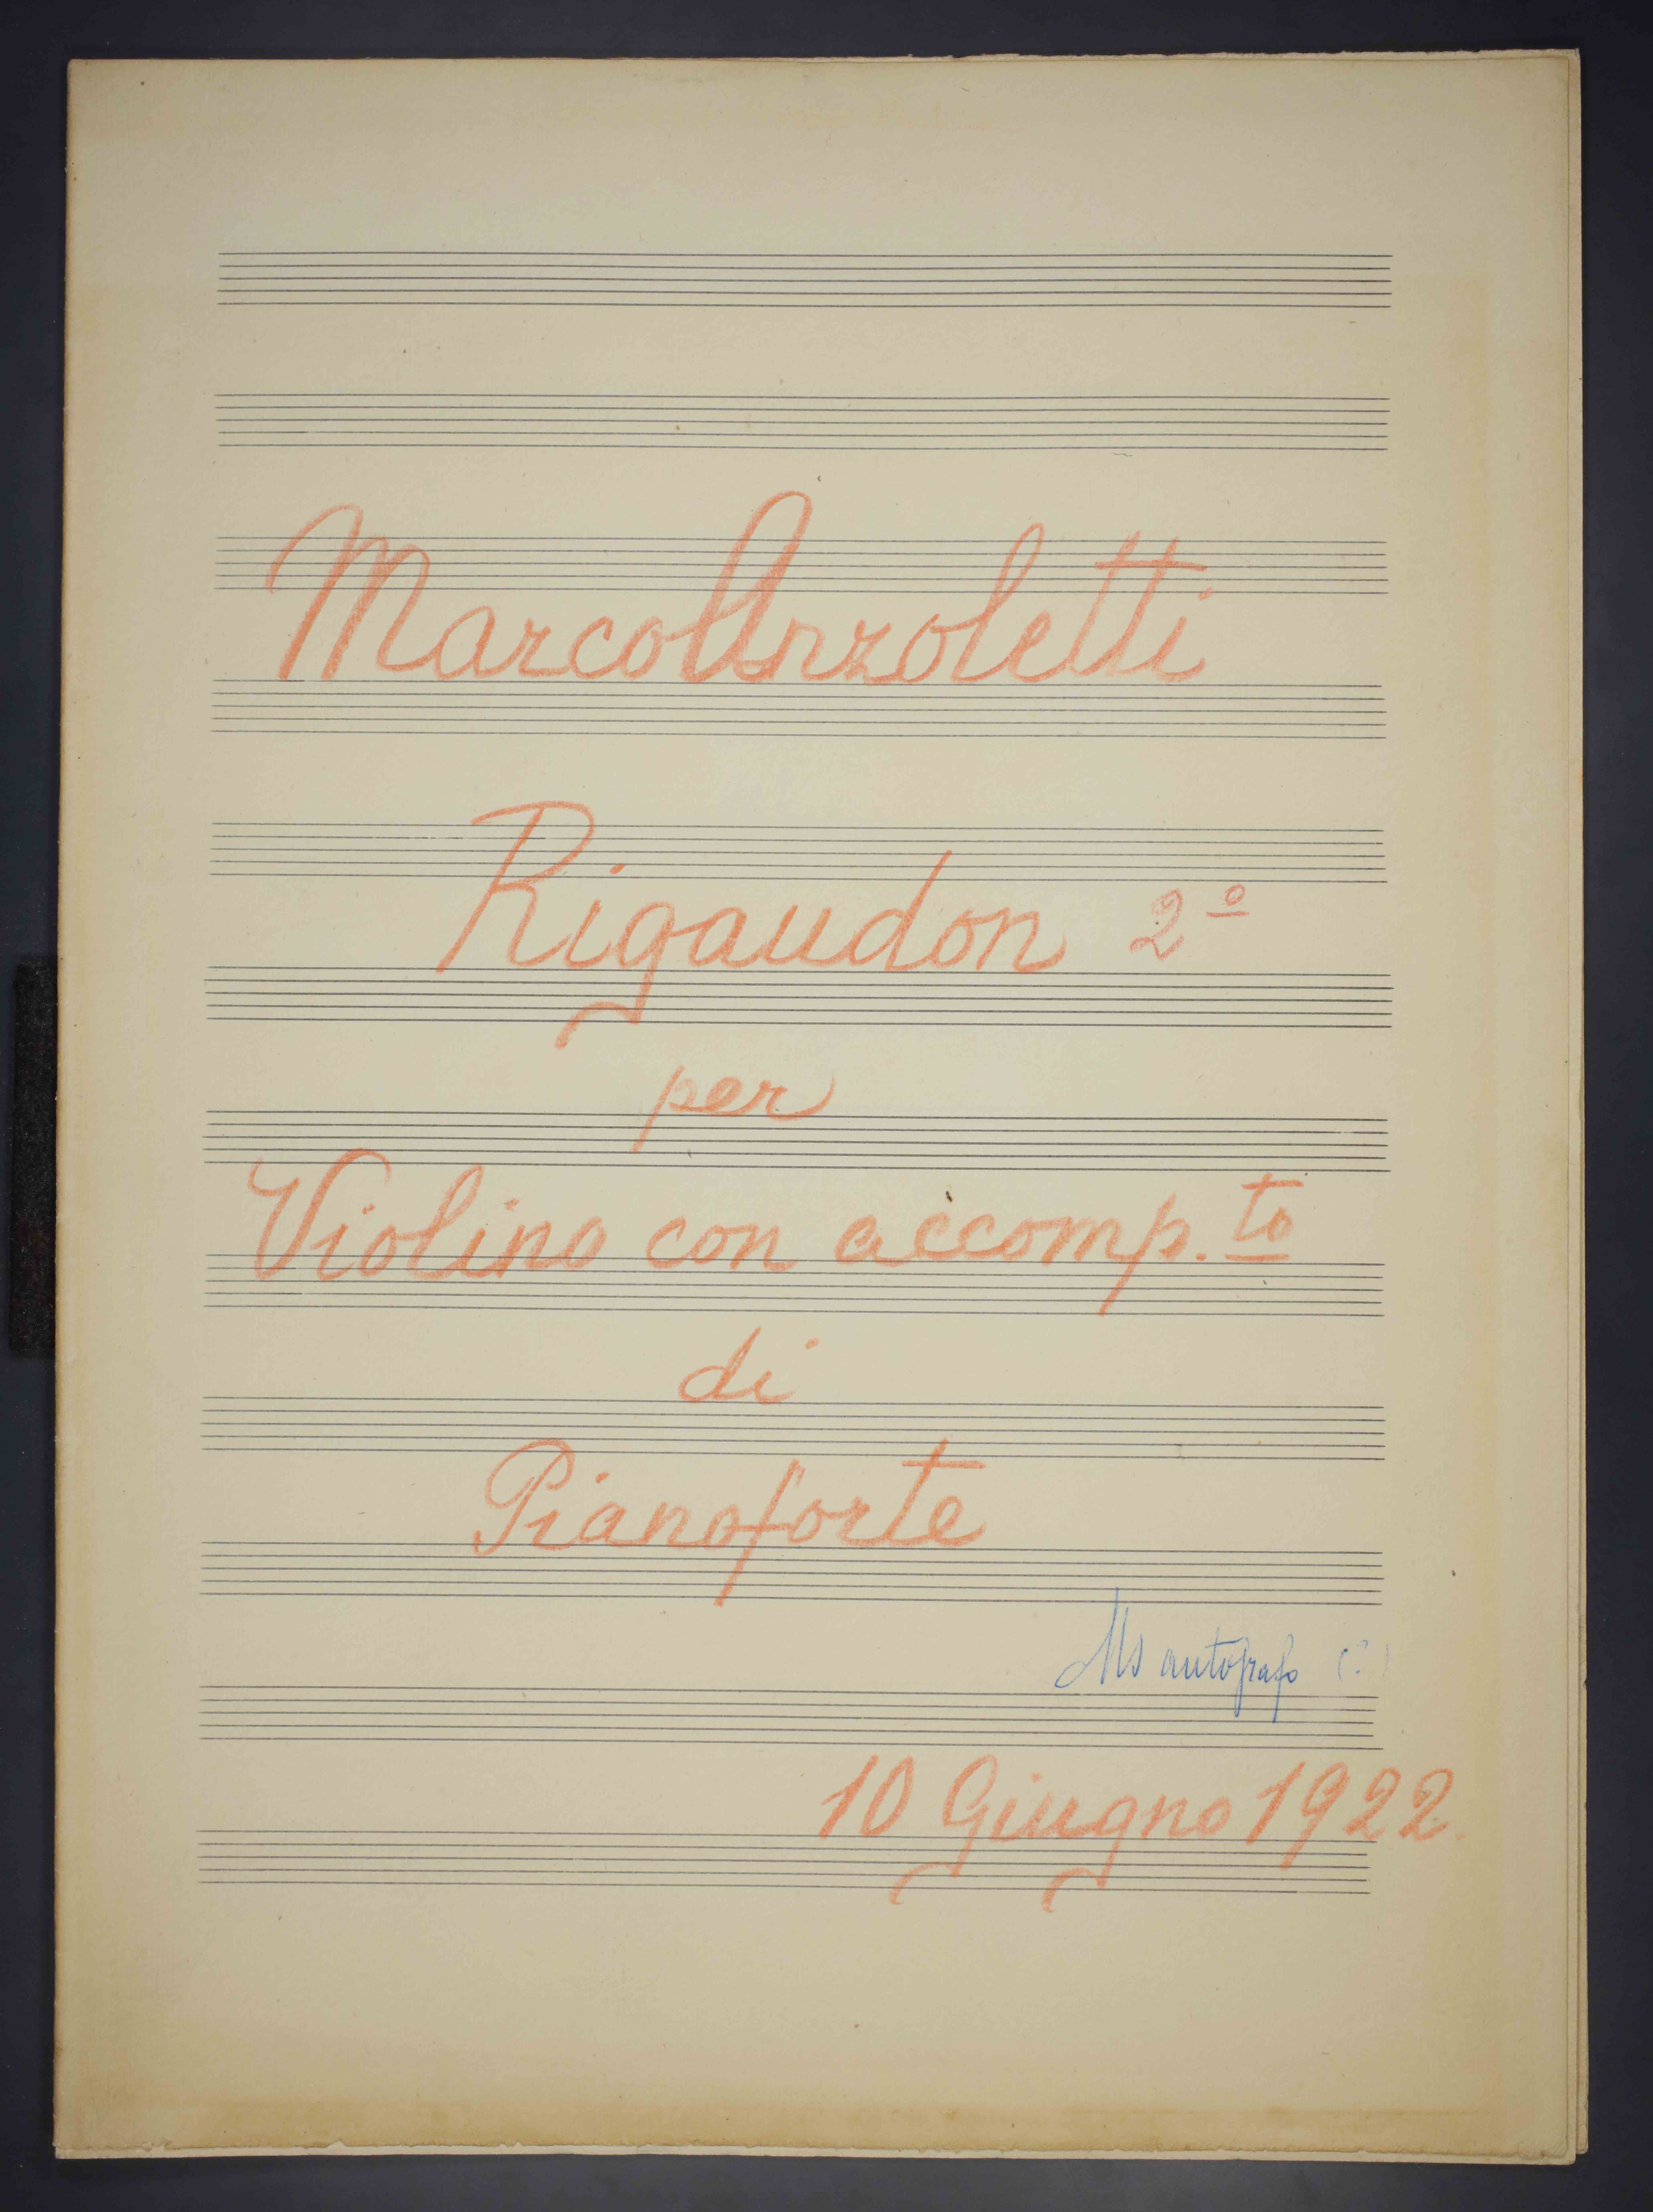 Marco Anzoletti
Rigaudon 2º
per
Violino con accomp.to
di
Pianoforte
Ms autografo (?)
10 Giugno 1922.